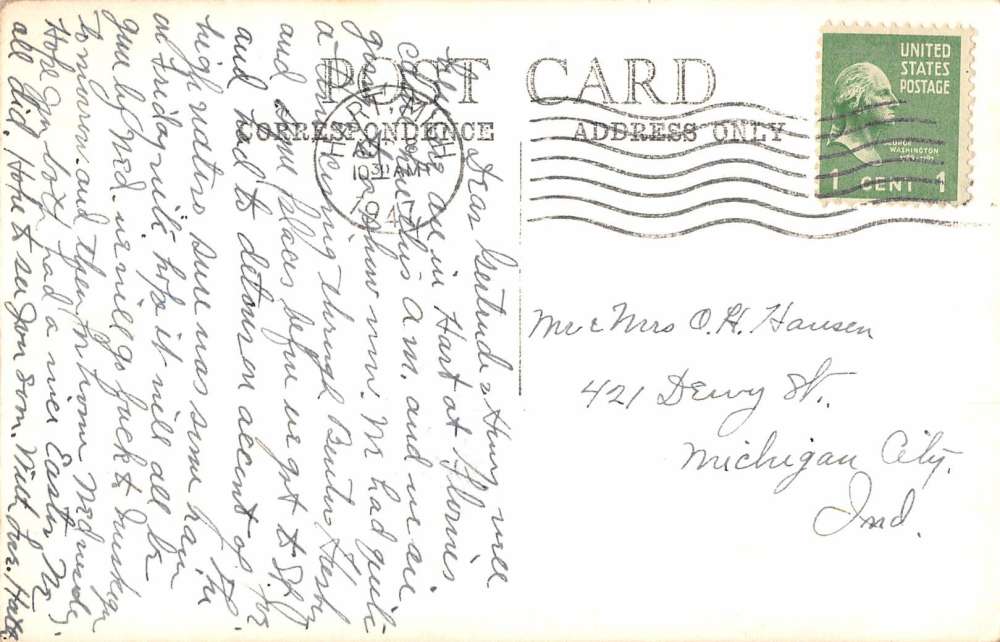 POST CARD
CORRESPONDENCE
ADDRESS ONLY
UNITED
STATES
POSTAGE
GEORGE
WASHINGTON
1 CENT 1
HART
MICH.
APR
10 30 AM
1947
Mr & Mrs O. H. Hansen
421 Dewy St.
Michigan City,
Ind.
Dear Gertrude & Hans, well
here we are in Hart at Florines
this a.m. and we are
now. We had quite
a time getting through Benton Harbor
and some places before we got to St Joe
and had to detour on account of the
high water, sure was some rain
on Friday nite, hope it will all be
gone by Wed. we will go back to Muskegon
tomorrow. and then on home Wednesday.
Hope you both had a nice Easter We
all did, Hope to see you soon. With Love.